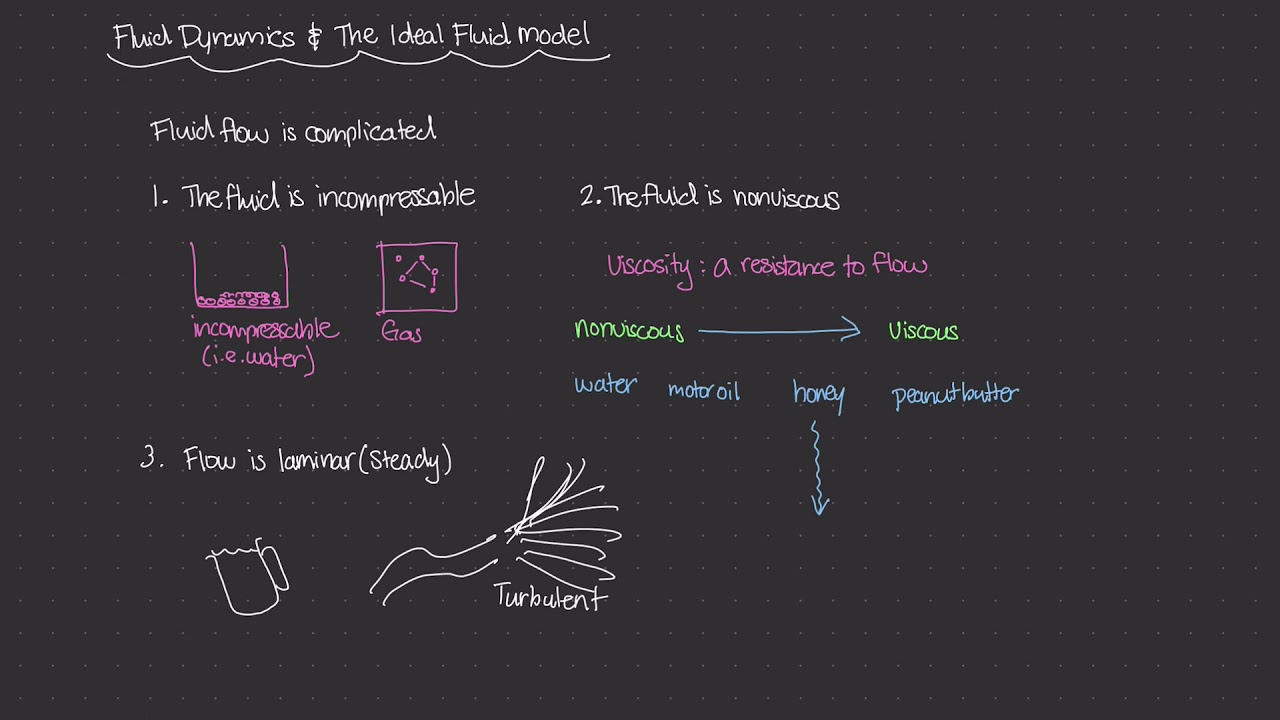 Fluid Dynamics & The Ideal Fluid model
Fluid flow is complicated
1. The fluid is incompressable
incompressable
(i.e. water)
Gas
2. The fluid is nonviscous
Viscosity: a resistance to flow
nonviscous
viscous
water motor oil honey peanut butter
3. Flow is laminar (steady)
Turbulent